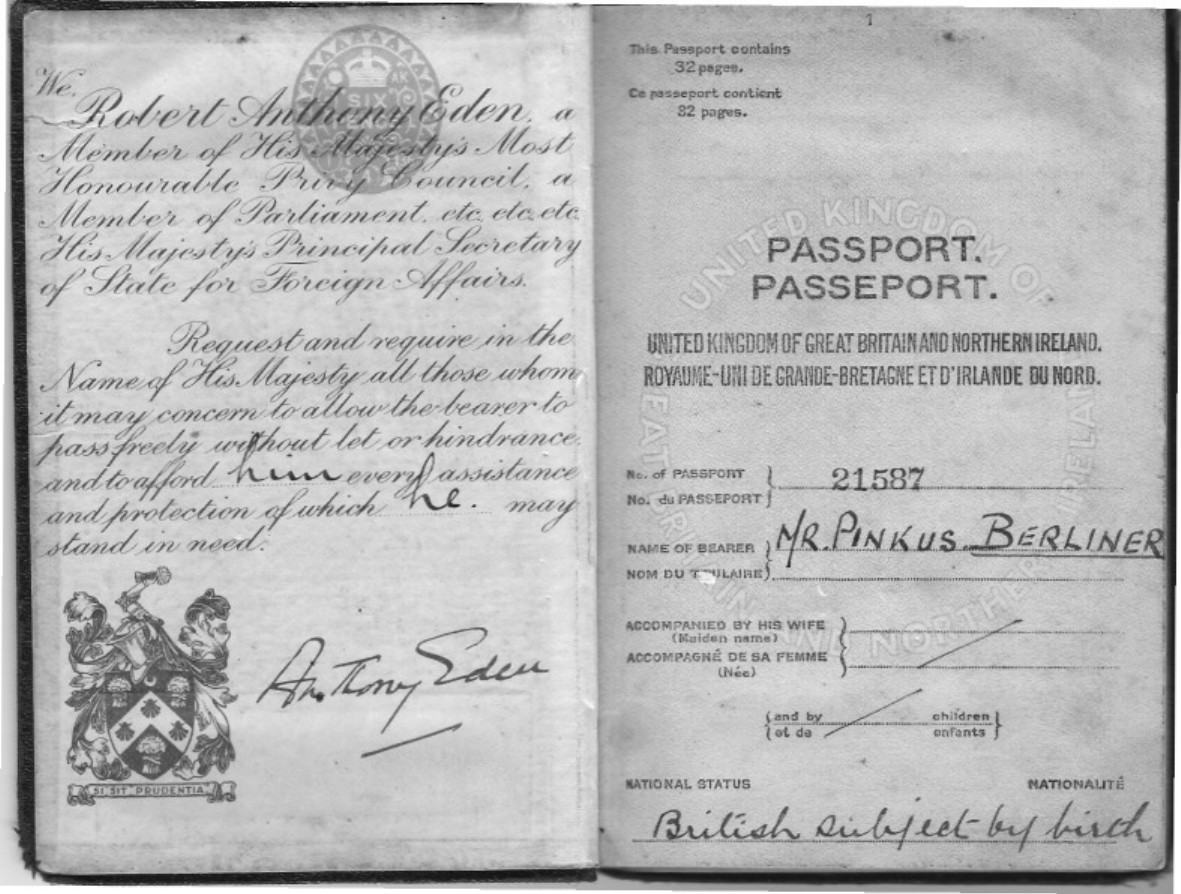 We,
Robert Anthony Eden, a
Member of His Majesty's Most
Honourable Privy Council, a
Member of Parliament, etc. etc. etc.
His Majesty's Principal Secretary
of State for Foreign Affairs.
Request and require in the
Name of His Majesty all those whom
it may concern to allow the bearer to
pass freely without let or hindrance,
and to afford him every assistance
and protection of which he. may
stand in need.
SIX
SI SIT PRUDENTIA
Anthony Eden
1
This Passport contains
32 pages.
Ce passeport contient
32 pages.
PASSPORT.
PASSEPORT.
UNITED KINGDOM OF GREAT BRITAIN AND NORTHERN IRELAND.
ROYAUME-UNI DE GRANDE-BRETAGNE ET D'IRLANDE DU NORD.
No. of PASSPORT
21587
No. du PASSEPORT
NAME OF BEARER
MR. PINKUS BERLINER
NOM DU TITULAIRE
ACCOMPANIED BY HIS WIFE
(Maiden name)
ACCOMPAGNÉ DE SA FEMME
(Née)
and by children
et de enfants
NATIONAL STATUS NATIONALITÉ
British subject by birth
UNITED KINGDOM OF GREAT BRITAIN AND NORTHERN IRELAND